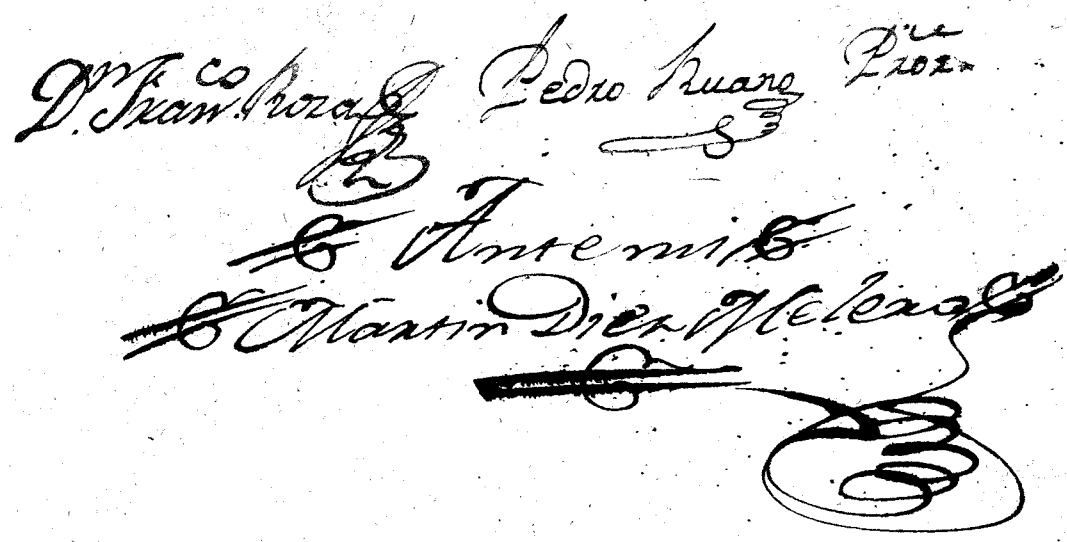 Dn. Fran.co Roza Pedro Ruano
Antemi
Martin Diez Melero